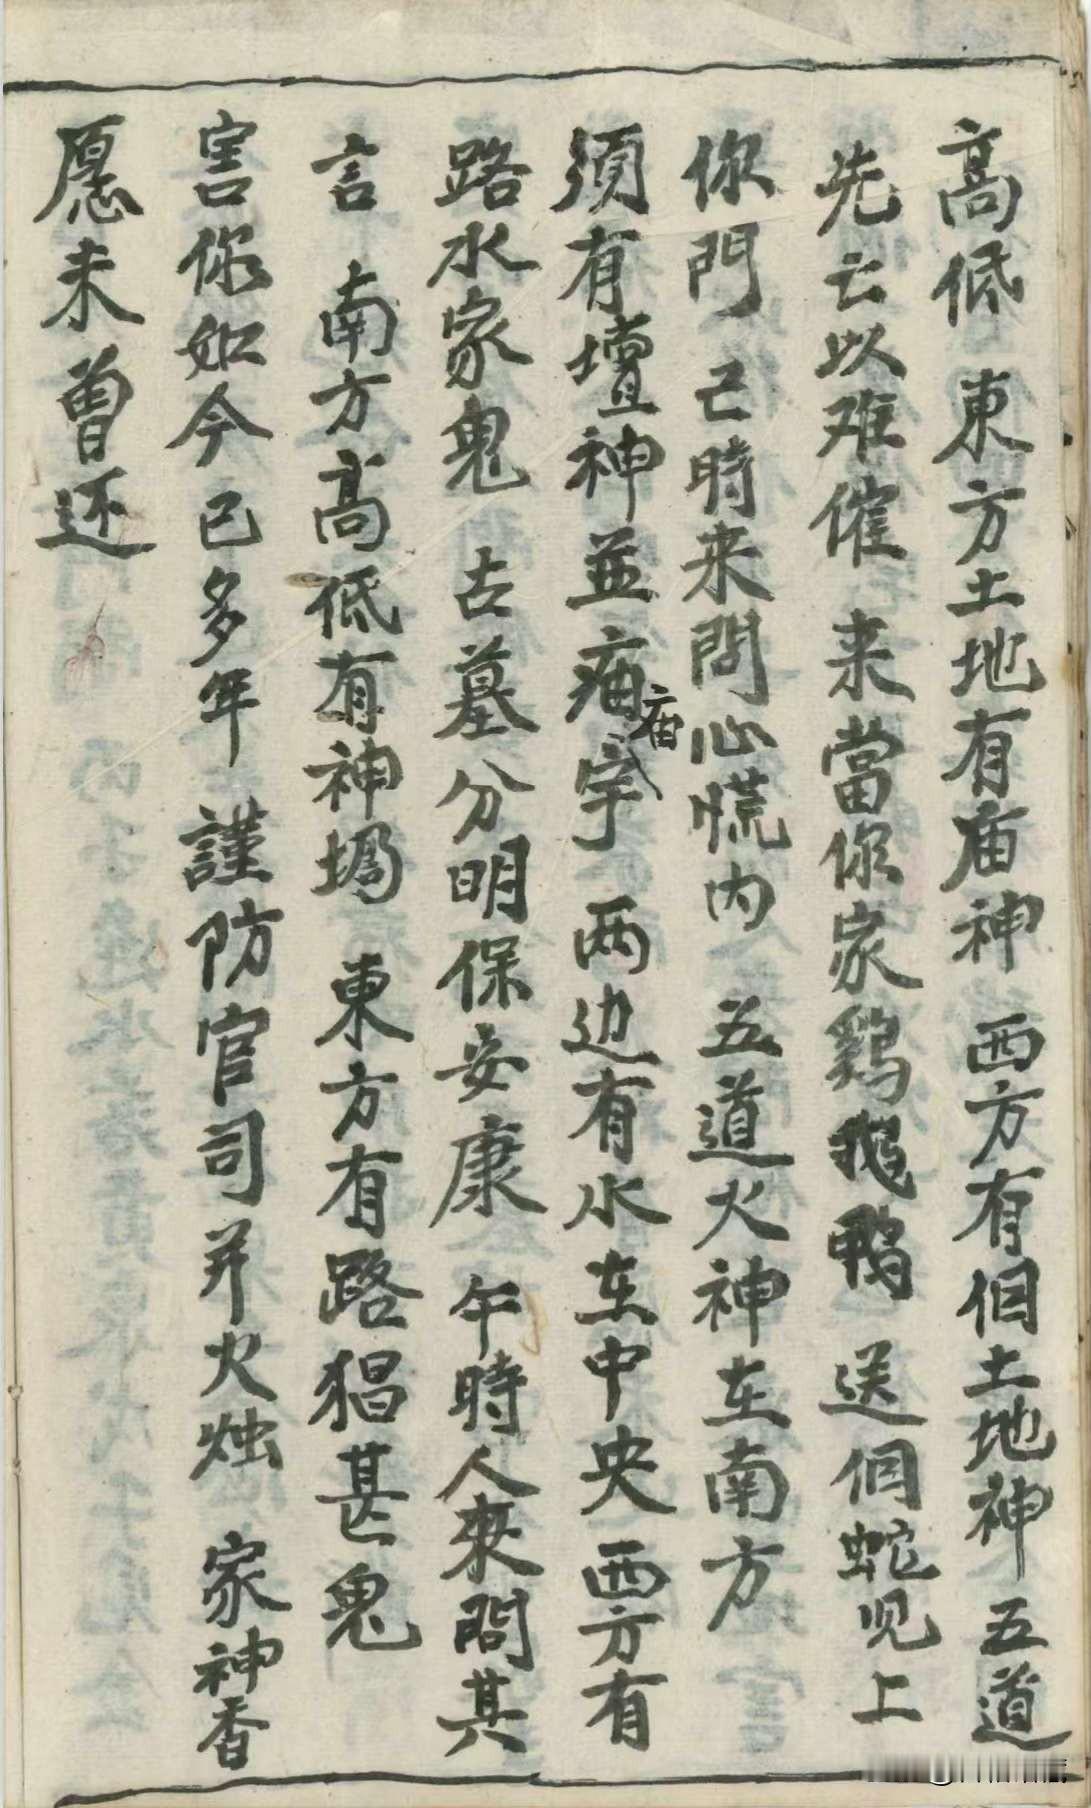 高低 東方土地有庙神 西方有個土地神 五道
先亡以难催 来當你家鸡鹅鸭 送個蛇児上
你門 己時来問心慌内 五道火神在南方
須有壇神並庙宇 两边有水在中央 西方有
庙
路水家鬼 古墓分明保安康 午時人來問其
言 南方高低有神塌 東方有路猖甚鬼
害你如今已多年 謹防官司并火烛 家神香
愿未曽还